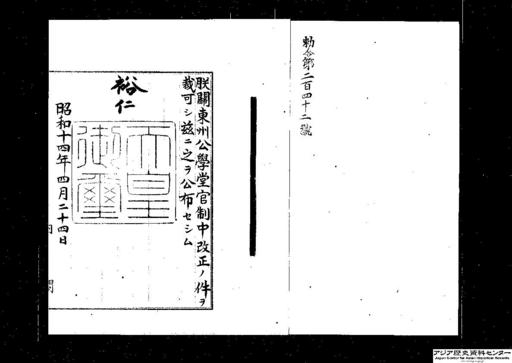 勅令第二百四十二號
朕關東州公學堂官制中改正ノ件ヲ
裁可シ茲ニ之ヲ公布セシム
裕仁
天皇
御璽
昭和十四年四月二十四日
アジア歴史資料センター
Japan Center for Asian Historical Records